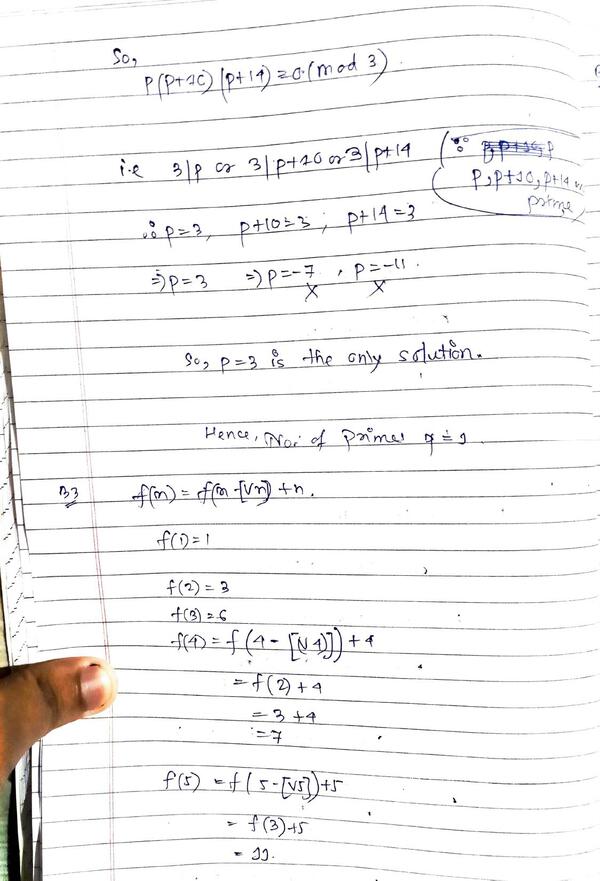 So,
P(P+10)(P+14)≡0(mod 3)
i.e 3|p or 3|p+10 or 3|p+14 (∵
p,p+10,p+14 is
prime)
∴ p=3, p+10=3; p+14=3
⇒p=3 ⇒p=-7, p=-11.
x x
So, p=3 is the only solution.
Hence, No. of primes = 1.
33 f(n) = f(n-[√n])+n.
f(1)=1
f(2)=3
f(3)=6
f(4)=f(4-[√4])+4
=f(2)+4
=3+4
=7
f(5)=f(5-[√5])+5
=f(3)+5
=11.